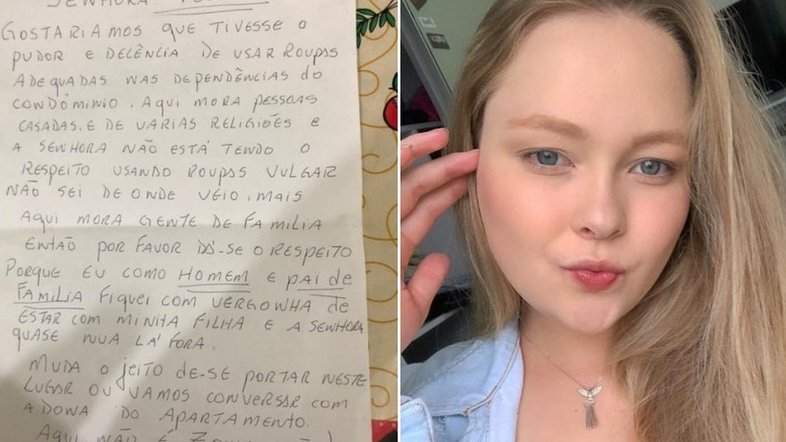 SENHORA
GOSTARIAMOS QUE TIVESSE O
PUDOR E DECÊNCIA DE USAR ROUPAS
ADEQUADAS NAS DEPENDÊNCIAS DO
CONDÔMINIO. AQUI MORA PESSOAS
CASADAS. E DE VARIAS RELIGIÕES E
A SENHORA NÃO ESTÁ TENDO O
RESPEITO USANDO ROUPAS VULGAR
NÃO SEI DE ONDE VEIO, MAIS
AQUI MORA GENTE DE FAMILIA
ENTÃO POR FAVOR DÁ-SE O RESPEITO
PORQUE EU COMO HOMEM E PAI DE
FAMILIA FIQUEI COM VERGONHA DE
ESTAR COM MINHA FILHA E A SENHORA
QUASE NUA LÁ FORA.
MUDA O JEITO DE-SE PORTAR NESTE
LUGAR OU VAMOS CONVERSAR COM
A DONA DO APARTAMENTO.
AQUI NÃO É